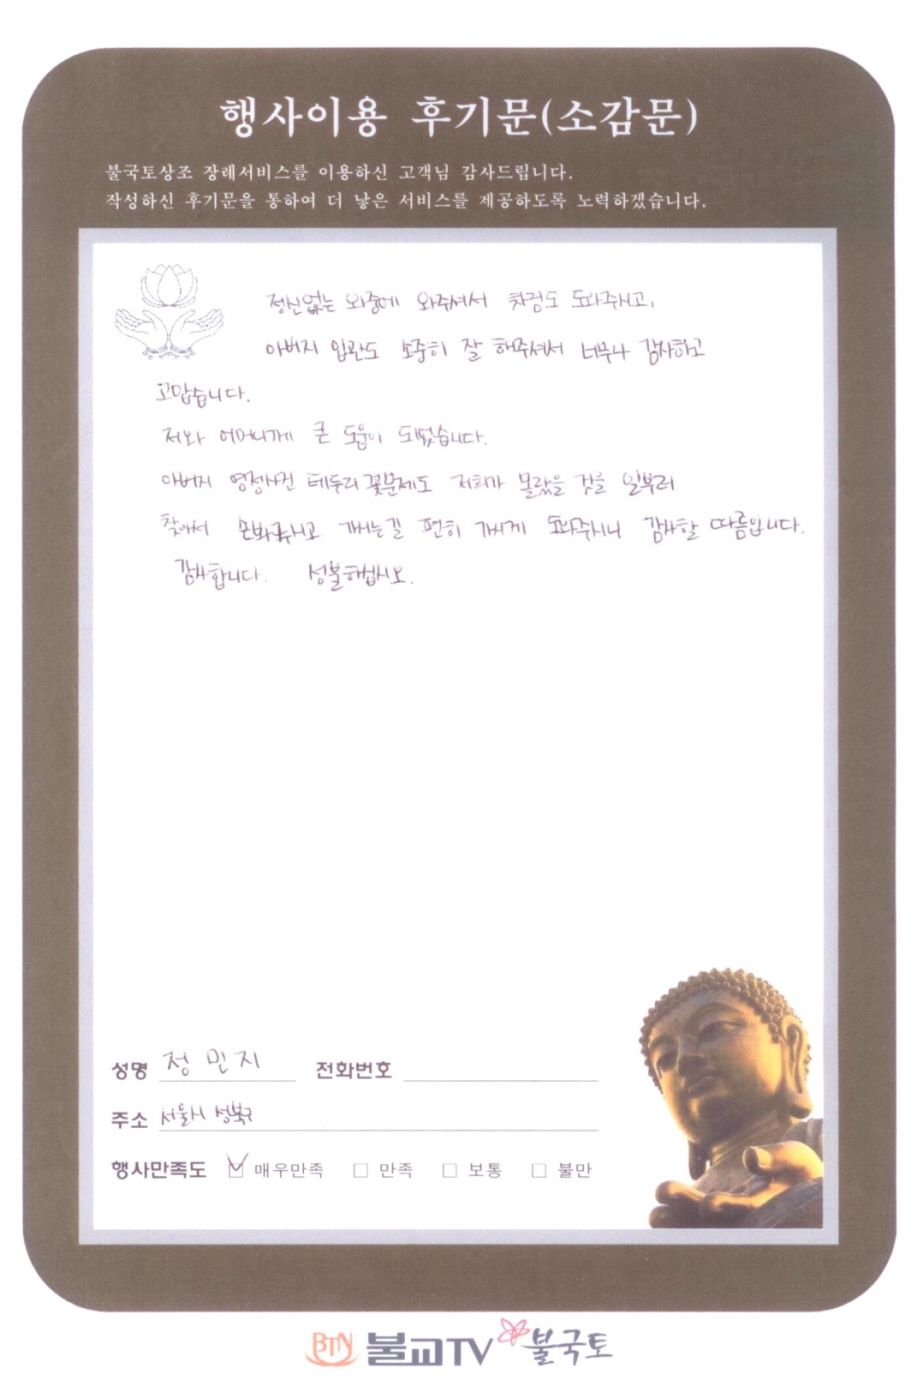 행사이용 후기문(소감문)
불국토상조 장례서비스를 이용하신 고객님 감사드립니다.
작성하신 후기문을 통하여 더 낳은 서비스를 제공하도록 노력하겠습니다.
정신없는 와중에 와주셔서 찻검도 도와주시고,
아버지 입관도 소중히 잘 해주셔서 너무나 감사하고
고맙습니다.
저와 어머니께 큰 도움이 되었습니다.
아버지 영정사진 테두리 꽃문제도 저희가 몰랐을 것을 일부러
찾아서 손봐주시고 가는길 편히 가시게 도와주시니 감사할 따름입니다.
감사합니다. 성불하십시오.
성명 정민지 전화번호
주소 서울시 성북구
행사만족도 매우만족 만족 보통 불만
BTN 불교TV 불국토